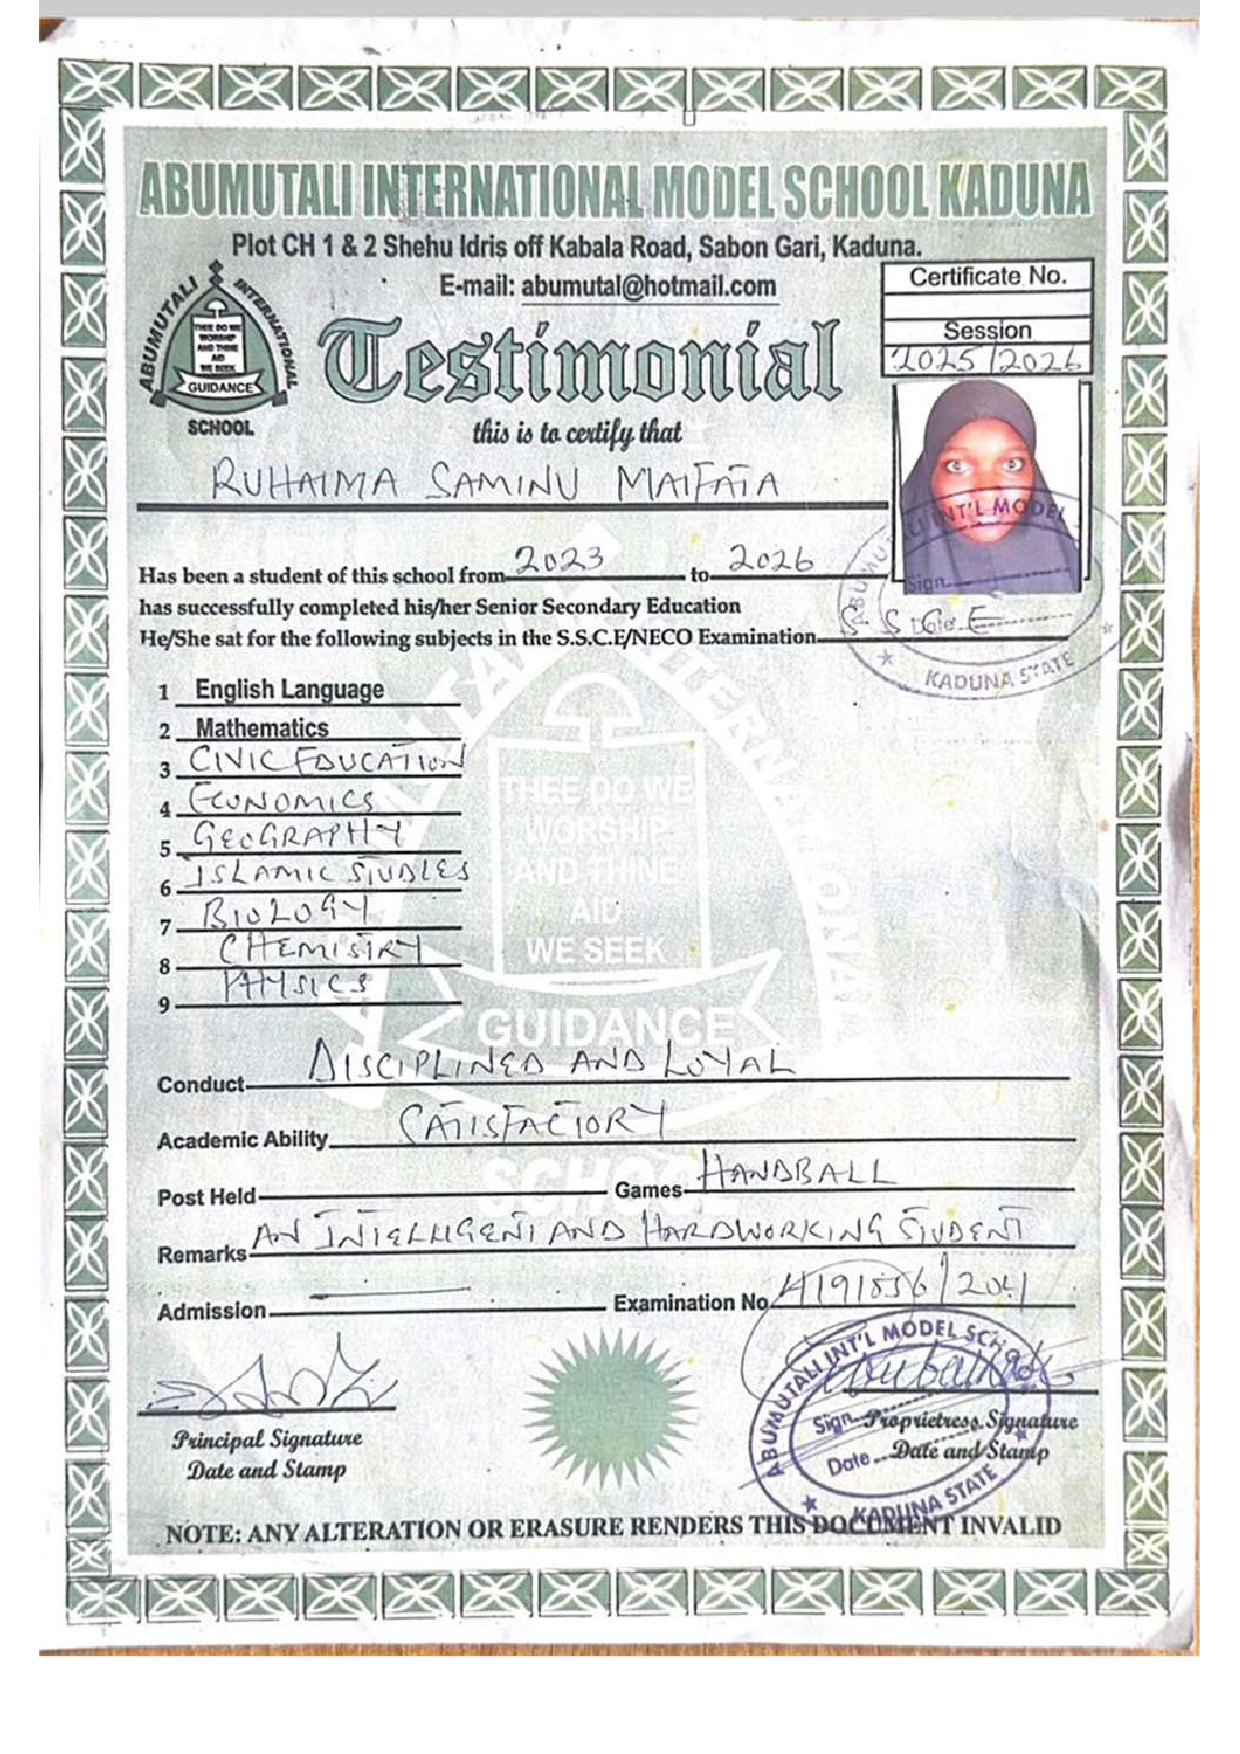 ABUMUTALI INTERNATIONAL MODEL SCHOOL KADUNA
Plot CH 1 & 2 Shehu Idris off Kabala Road, Sabon Gari, Kaduna.
E-mail: abumutal@hotmail.com
Certificate No.
Session
2025/2026
ABUMUTALI INTERNATIONAL
THEE DO WE
WORSHIP
AND THINE
AID
WE SEEK
GUIDANCE
SCHOOL
Testimonial
this is to certify that
RUHAIMA SAMINU MAIFATA
Has been a student of this school from 2023 to 2026
has successfully completed his/her Senior Secondary Education
He/She sat for the following subjects in the S.S.C.E/NECO Examination SSCE
ABUMUTALI INT'L MODEL
Sign
Date
KADUNA STATE
1 English Language
2 Mathematics
3 CIVIC EDUCATION
4 ECONOMICS
5 GEOGRAPHY
6 ISLAMIC STUDIES
7 BIOLOGY
8 CHEMISTRY
9 PHYSICS
THEE DO WE
WORSHIP
AND THINE
AID
WE SEEK
GUIDANCE
SCHOOL
Conduct DISCIPLINED AND LOYAL
Academic Ability SATISFACTORY
Post Held Games HANDBALL
Remarks AN INTELLIGENT AND HARDWORKING STUDENT
Admission Examination No
ABUMUTALI INT'L MODEL SCHOOL
Sign
Date
KADUNA STATE
Principal Signature
Date and Stamp
Proprietress Signature
Date and Stamp
NOTE: ANY ALTERATION OR ERASURE RENDERS THIS DOCUMENT INVALID